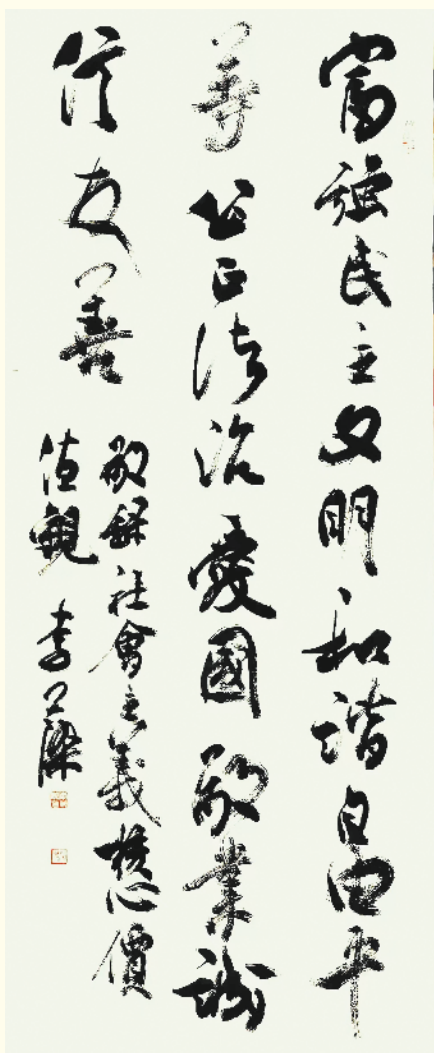 富强民主文明和諧自由平
等公正法治愛國敬業誠
信友善
敬録社會主義核心價
值觀 李